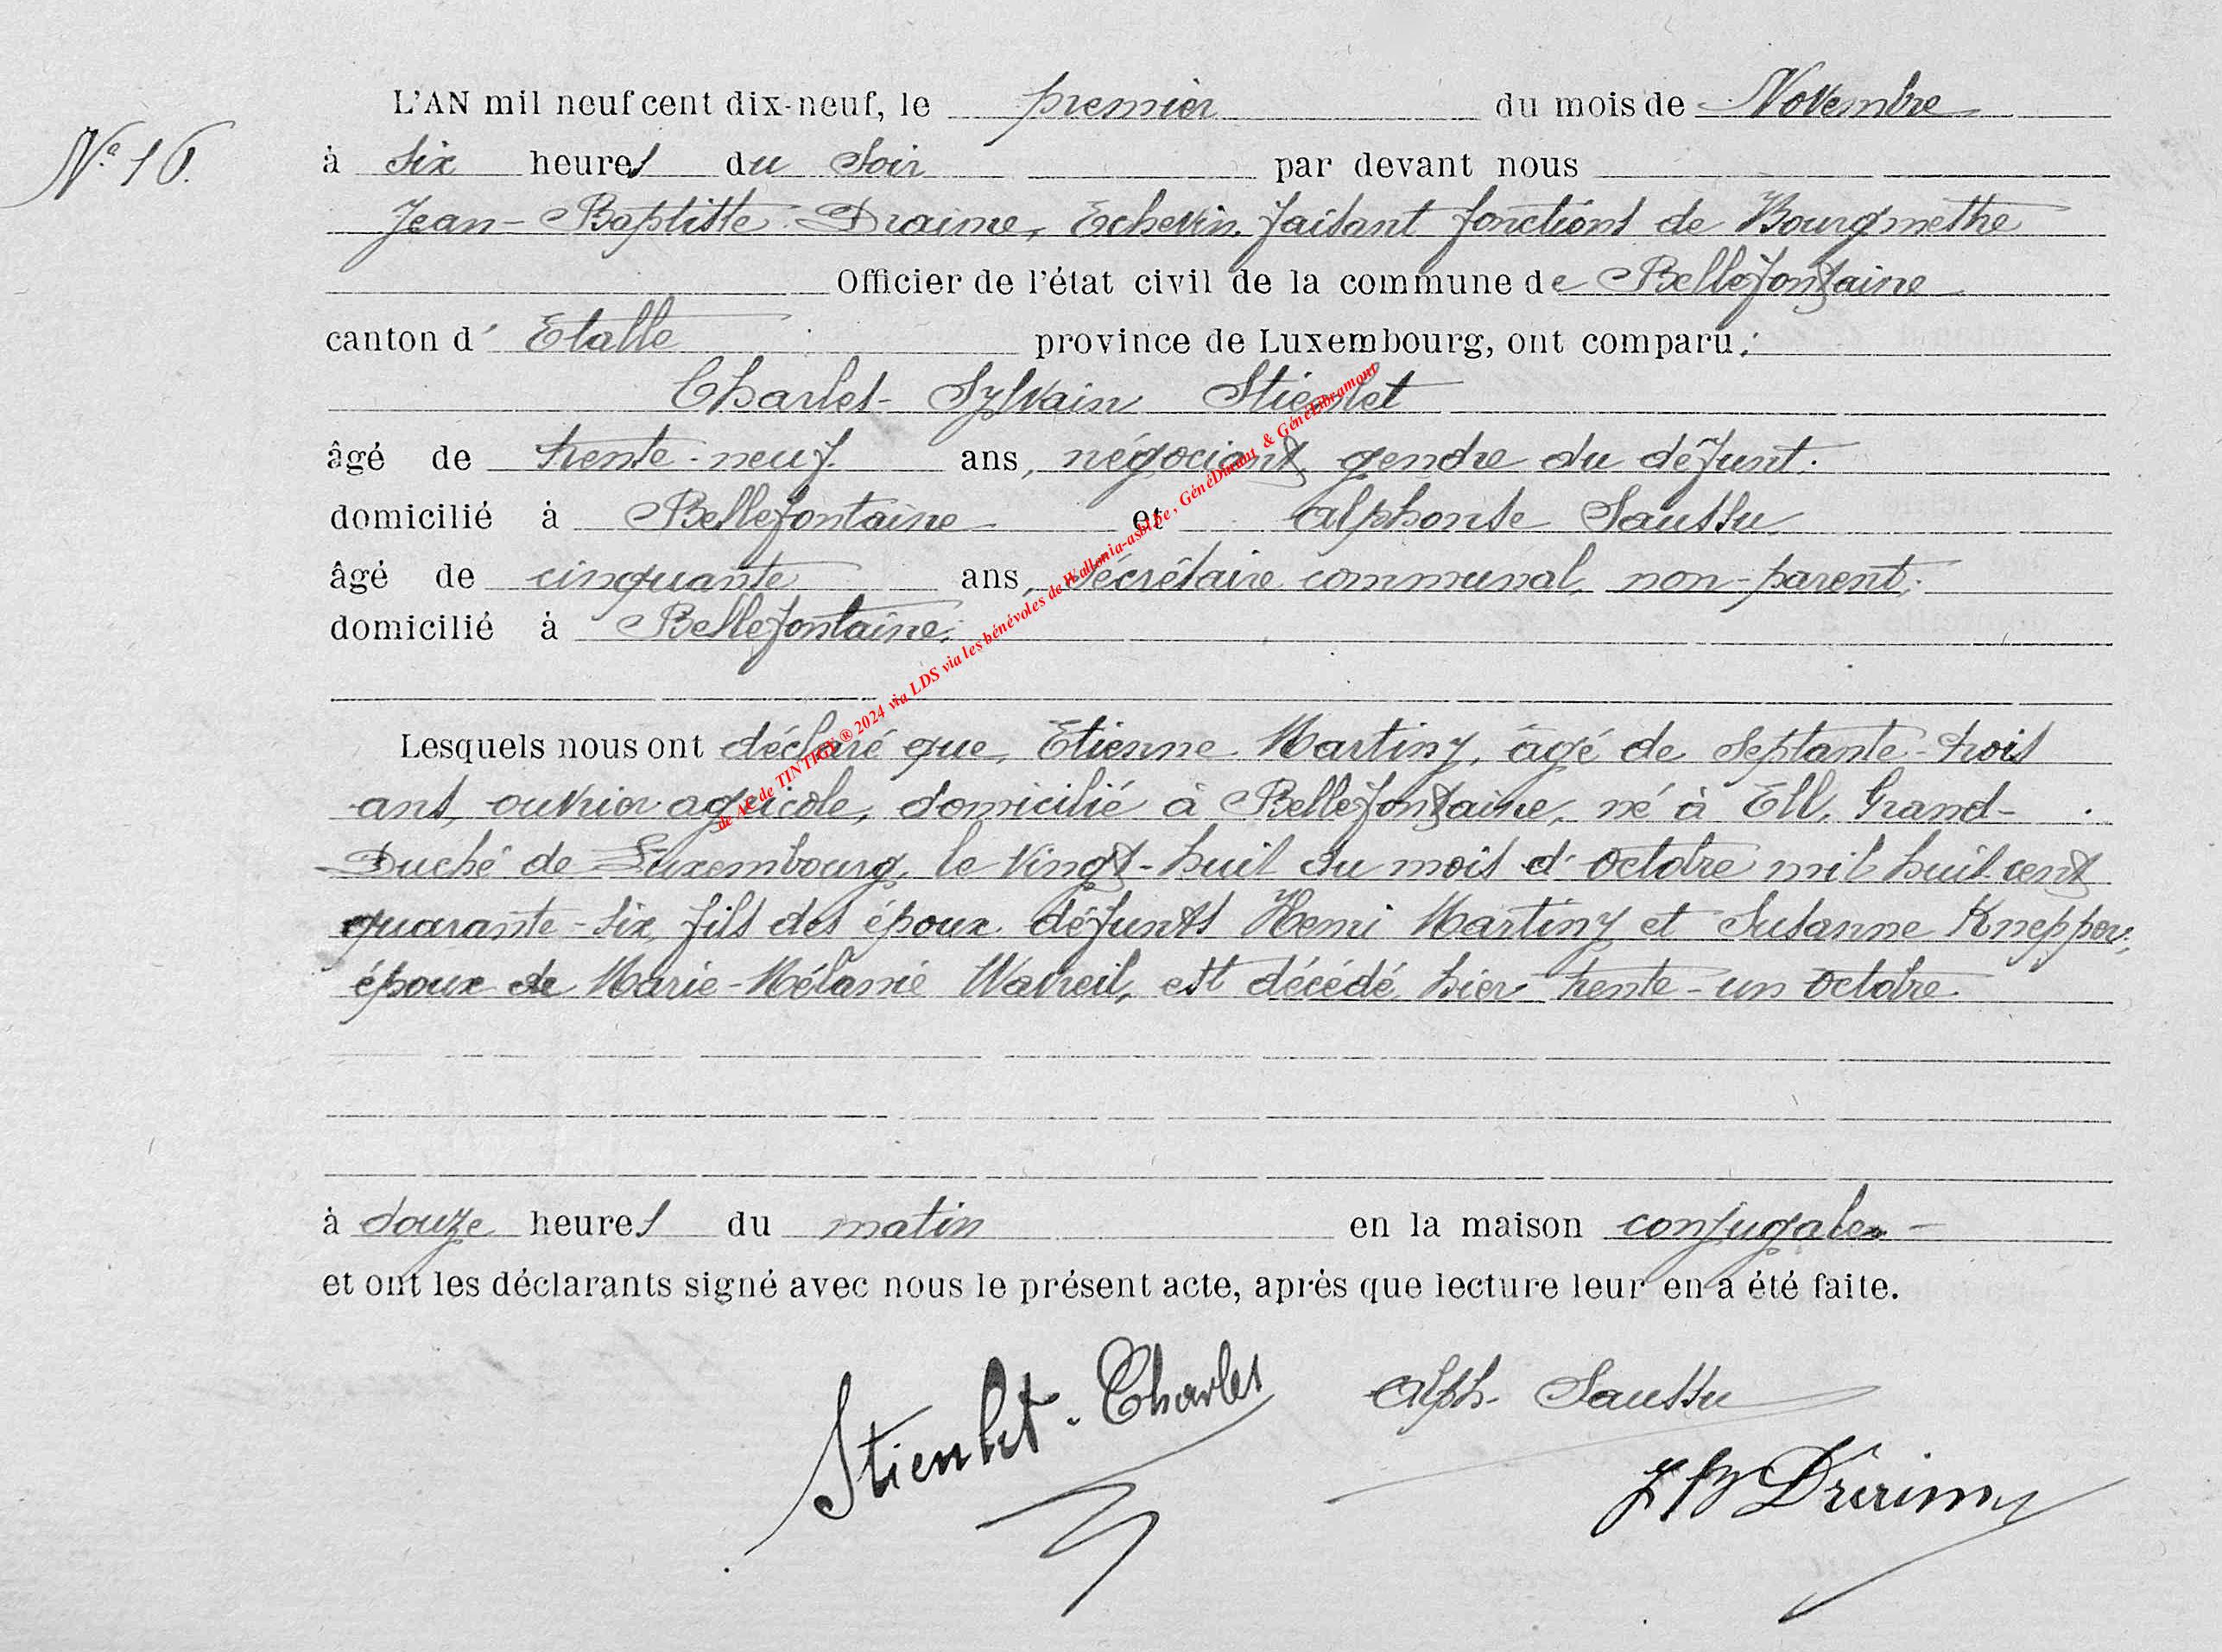 N.° 16.
L'AN mil neuf cent dix-neuf, le premier du mois de Novembre
à six heures du soir par devant nous
Jean-Baptiste Draime, Echevin, faisant fonctions de Bourgmethe
Officier de l'état civil de la commune de Bellefontaine
canton d' Etalle province de Luxembourg, ont comparu :
Charles-Sylvain Stienlet
âgé de trente-neuf ans, négociant, gendre du défunt.
domicilié à Bellefontaine et Alphonse Saussu
âgé de cinquante ans, secrétaire communal, non-parent.
domicilié à Bellefontaine.
Lesquels nous ont déclaré que, Etienne Martiny, âgé de septante-trois
ans, ouvrier agricole, domicilié à Bellefontaine, né à Ell, Grand-
Duché de Luxembourg, le vingt-huit du mois d'octobre mil huit cent
quarante-six, fils des époux défunts Henri Martiny et Susanne Knepper,
époux de Marie-Mélanie Wavreil, est décédé hier trente-un octobre
à douze heures du matin en la maison conjugale
et ont les déclarants signé avec nous le présent acte, après que lecture leur en a été faite.
Stienlet-Charles Alph. Saussu
J B Draime
de AC de TINTIGNY ® 2024 via LDS via les bénévoles de Wallonia-asbl.be, GénéDinant & GénéLibramont